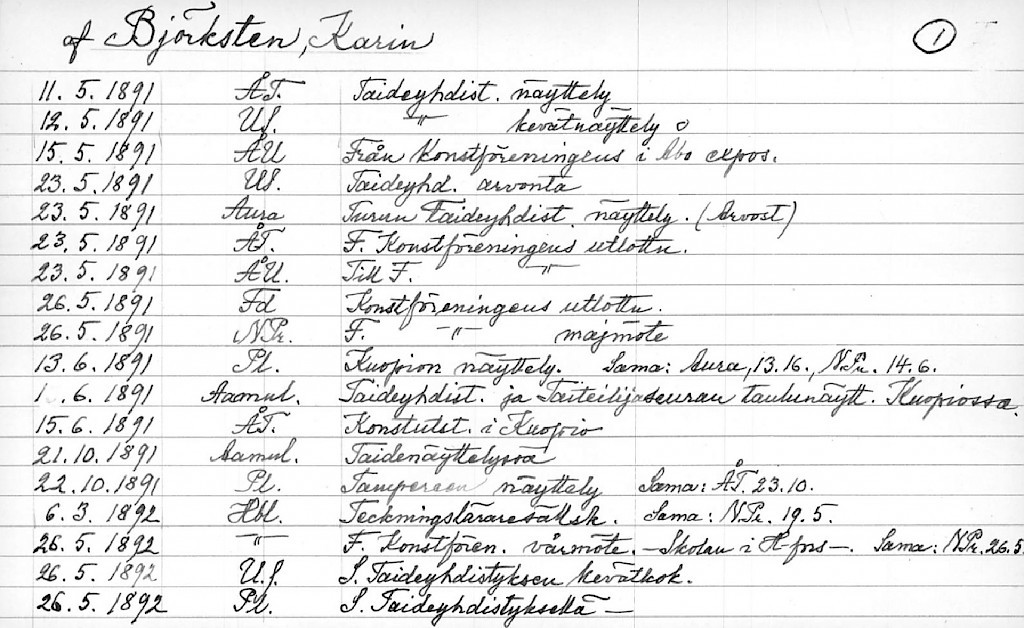 af Björksten, Karin 1
11. 5. 1891 ÅT. Taideyhdist. näyttely
12. 5. 1891 Us. –"– kevätnäyttely
15. 5. 1891 ÅU Från Konstföreningens i Åbo expos.
23. 5. 1891 US. Taideyhd. arvonta
23. 5. 1891 Aura Turun Taideyhdist. näyttely. (Arvost)
23. 5. 1891 ÅT. F. Konstföreningens utlottn.
23. 5. 1891 ÅU. Till F. –"–
26. 5. 1891 Fd Konstföreningens utlottn.
26. 5. 1891 N.Pr. F. –"– majmöte
13. 6. 1891 Pl. Kuopion näyttely. Sama: Aura, 13.16., N.Pr. 14.6.
1 . 6. 1891 Aamul. Taideyhdist. ja Taiteilijaseuran taulunäytt. Kuopiossa.
15. 6. 1891 ÅT. Konstutst. i Kuopio
21. 10. 1891 Aamul. Taidenäyttelyssä
22. 10. 1891 Pl. Tampereen näyttely Sama: ÅT. 23.10.
6. 3. 1892 Hbl. Teckningsläraresällsk. Sama: N.Pr. 19.5.
26. 5. 1892 –"– F. Konstfören. vårmöte. –Skolan i H-fors–. Sama: N.Pr. 26.5
26. 5. 1892 U.S. S. Taideyhdistyksen kevätkok.
26. 5. 1892 Pl. S. Taideyhdistyksellä –